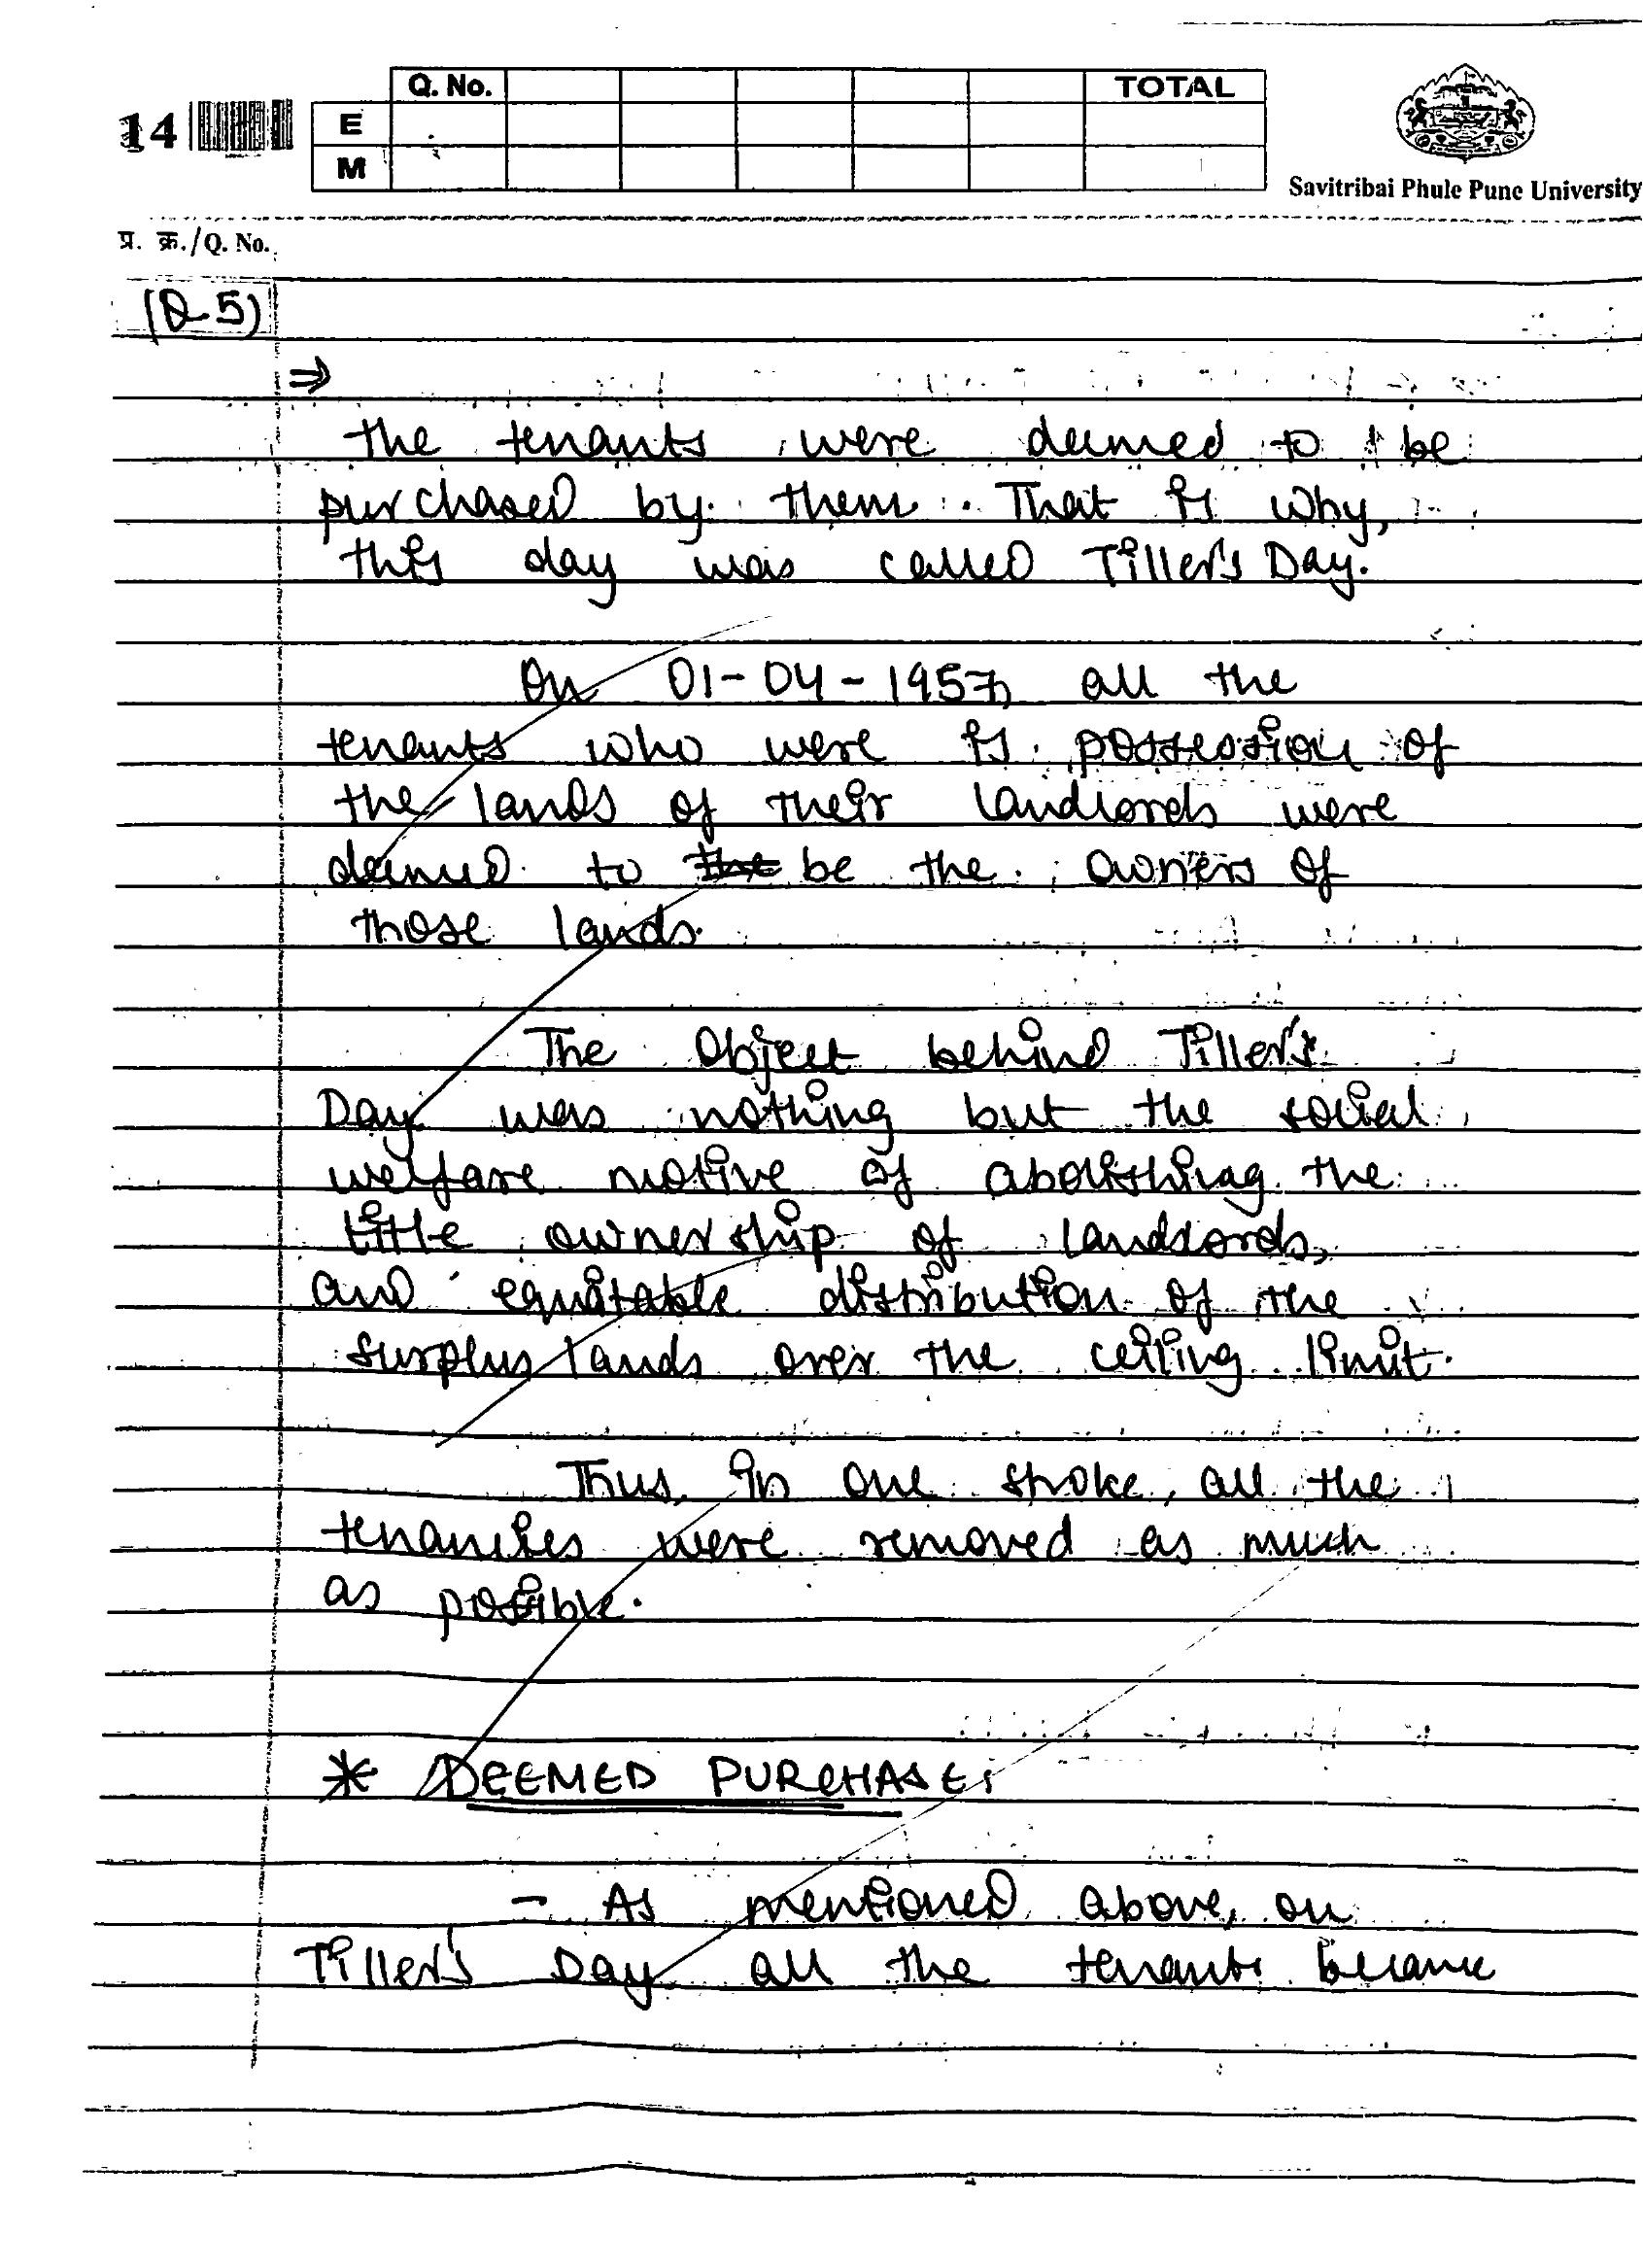 14
Q. No. TOTAL
E
M
Savitribai Phule Pune University
प्र. क्र./Q. No.
(Q-5)
⇒
the tenants were deemed to be
purchased by them. That is why,
this day was called Tiller's Day.
On 01-04-1957, all the
tenants who were is possession of
the lands of their landlords were
deemed to the be the owners of
those lands.
The object behind Tiller's
Day was nothing but the social
welfare motive of abolishing the
title ownership of landlords,
and equitable distribution of the
surplus lands over the ceiling limit.
Thus, in one stroke, all the
tenancies were removed as much
as possible.
* DEEMED PURCHASE:
- As mentioned above, on
Tiller's Day all the tenants became